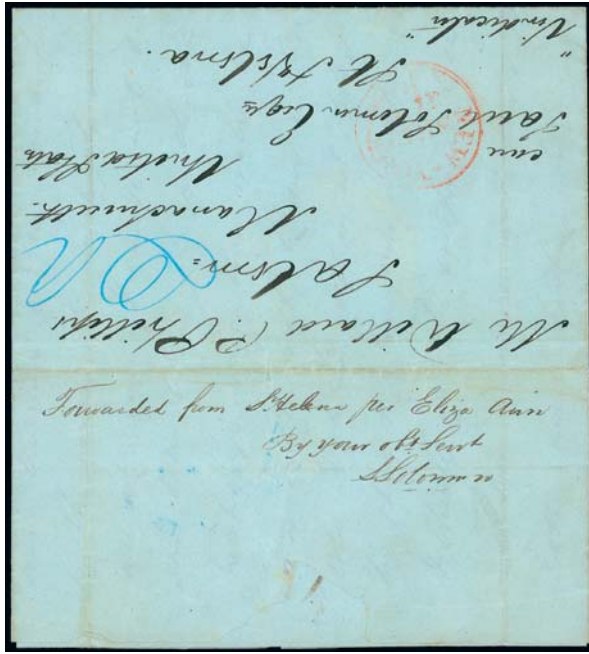 Mr Willard P. Phillips
Salem=
Massachusetts.
United States
care
Saul Solomon Esqre
St Helena.
"Vindicator"
NEW
Forwarded from St Helena per Eliza Ann
By your obt Servt
S Solomon